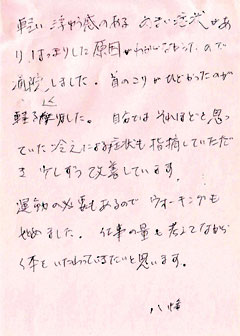 軽い浮遊感のある めまい症状があ
り はっきりした原因がわからなかったので
通院しました。首のこりがひどかったのが
軽減しました。自分では それほどと思っ
ていた冷えによる症状も指摘していただ
き 少しずつ改善しています。
運動の必要もあるので ウォーキングも
始めました。仕事の量も考えてながら
体をいたわっていきたいと思います。
八幡